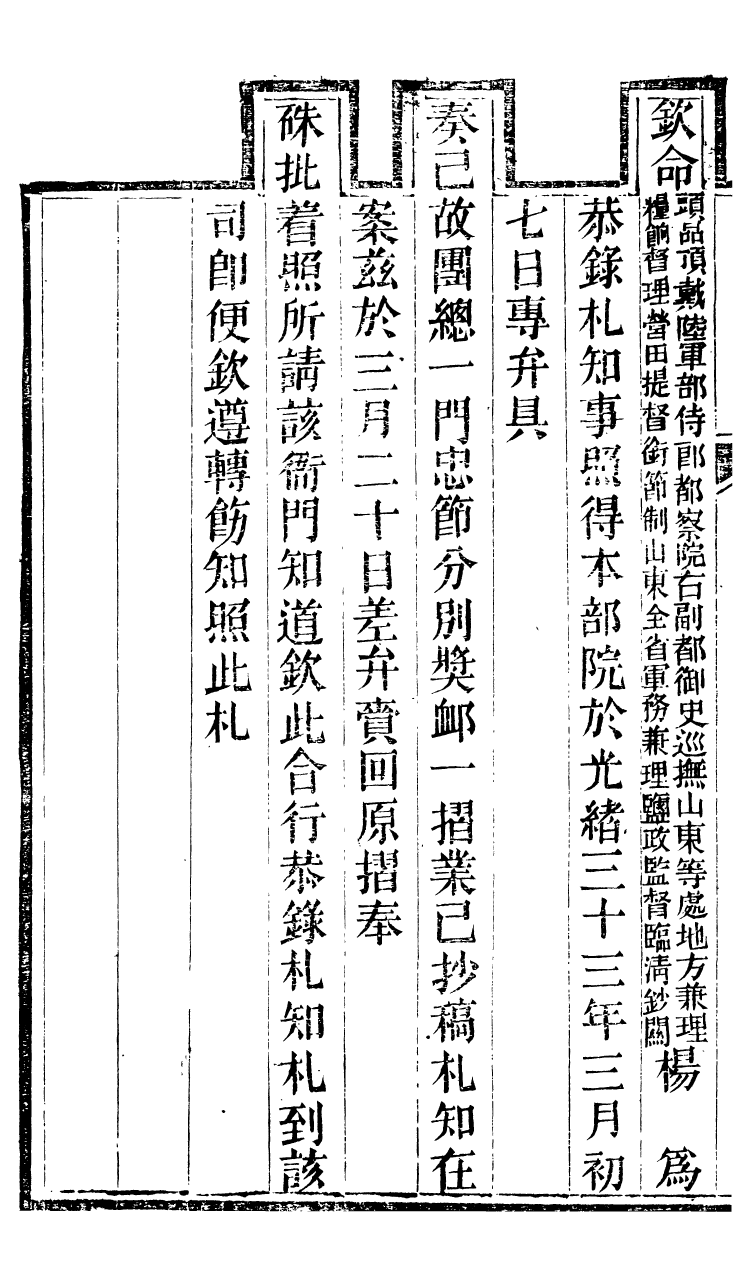 欽命頭品頂戴陸軍部侍郎都察院右副都御史巡撫山東等處地方兼理
糧餉督理營田提督銜節制山東全省軍務兼理鹽政監督臨清鈔關楊　爲
恭錄札知事照得本部院於光緒三十三年三月初
七日專弁具
奏已故團總一門忠節分別獎卹一摺業已抄稿札知在
案茲於三月二十日差弁賫回原摺奉
硃批着照所請該衙門知道欽此合行恭錄札知札到該
司卽便欽遵轉飭知照此札